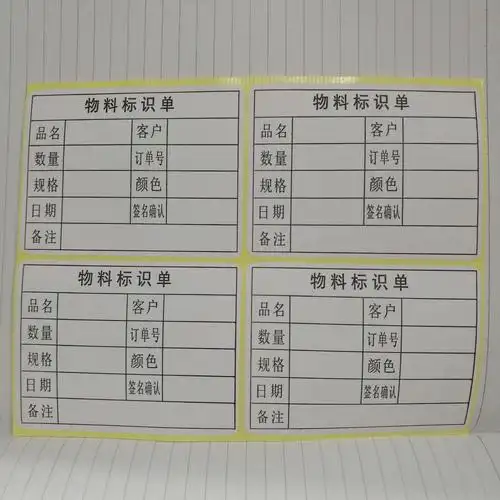 物料标识单
品名 客户
数量 订单号
规格 颜色
日期 签名确认
备注
物料标识单
品名 客户
数量 订单号
规格 颜色
日期 签名确认
备注
物料标识单
品名 客户
数量 订单号
规格 颜色
日期 签名确认
备注
物料标识单
品名 客户
数量 订单号
规格 颜色
日期 签名确认
备注